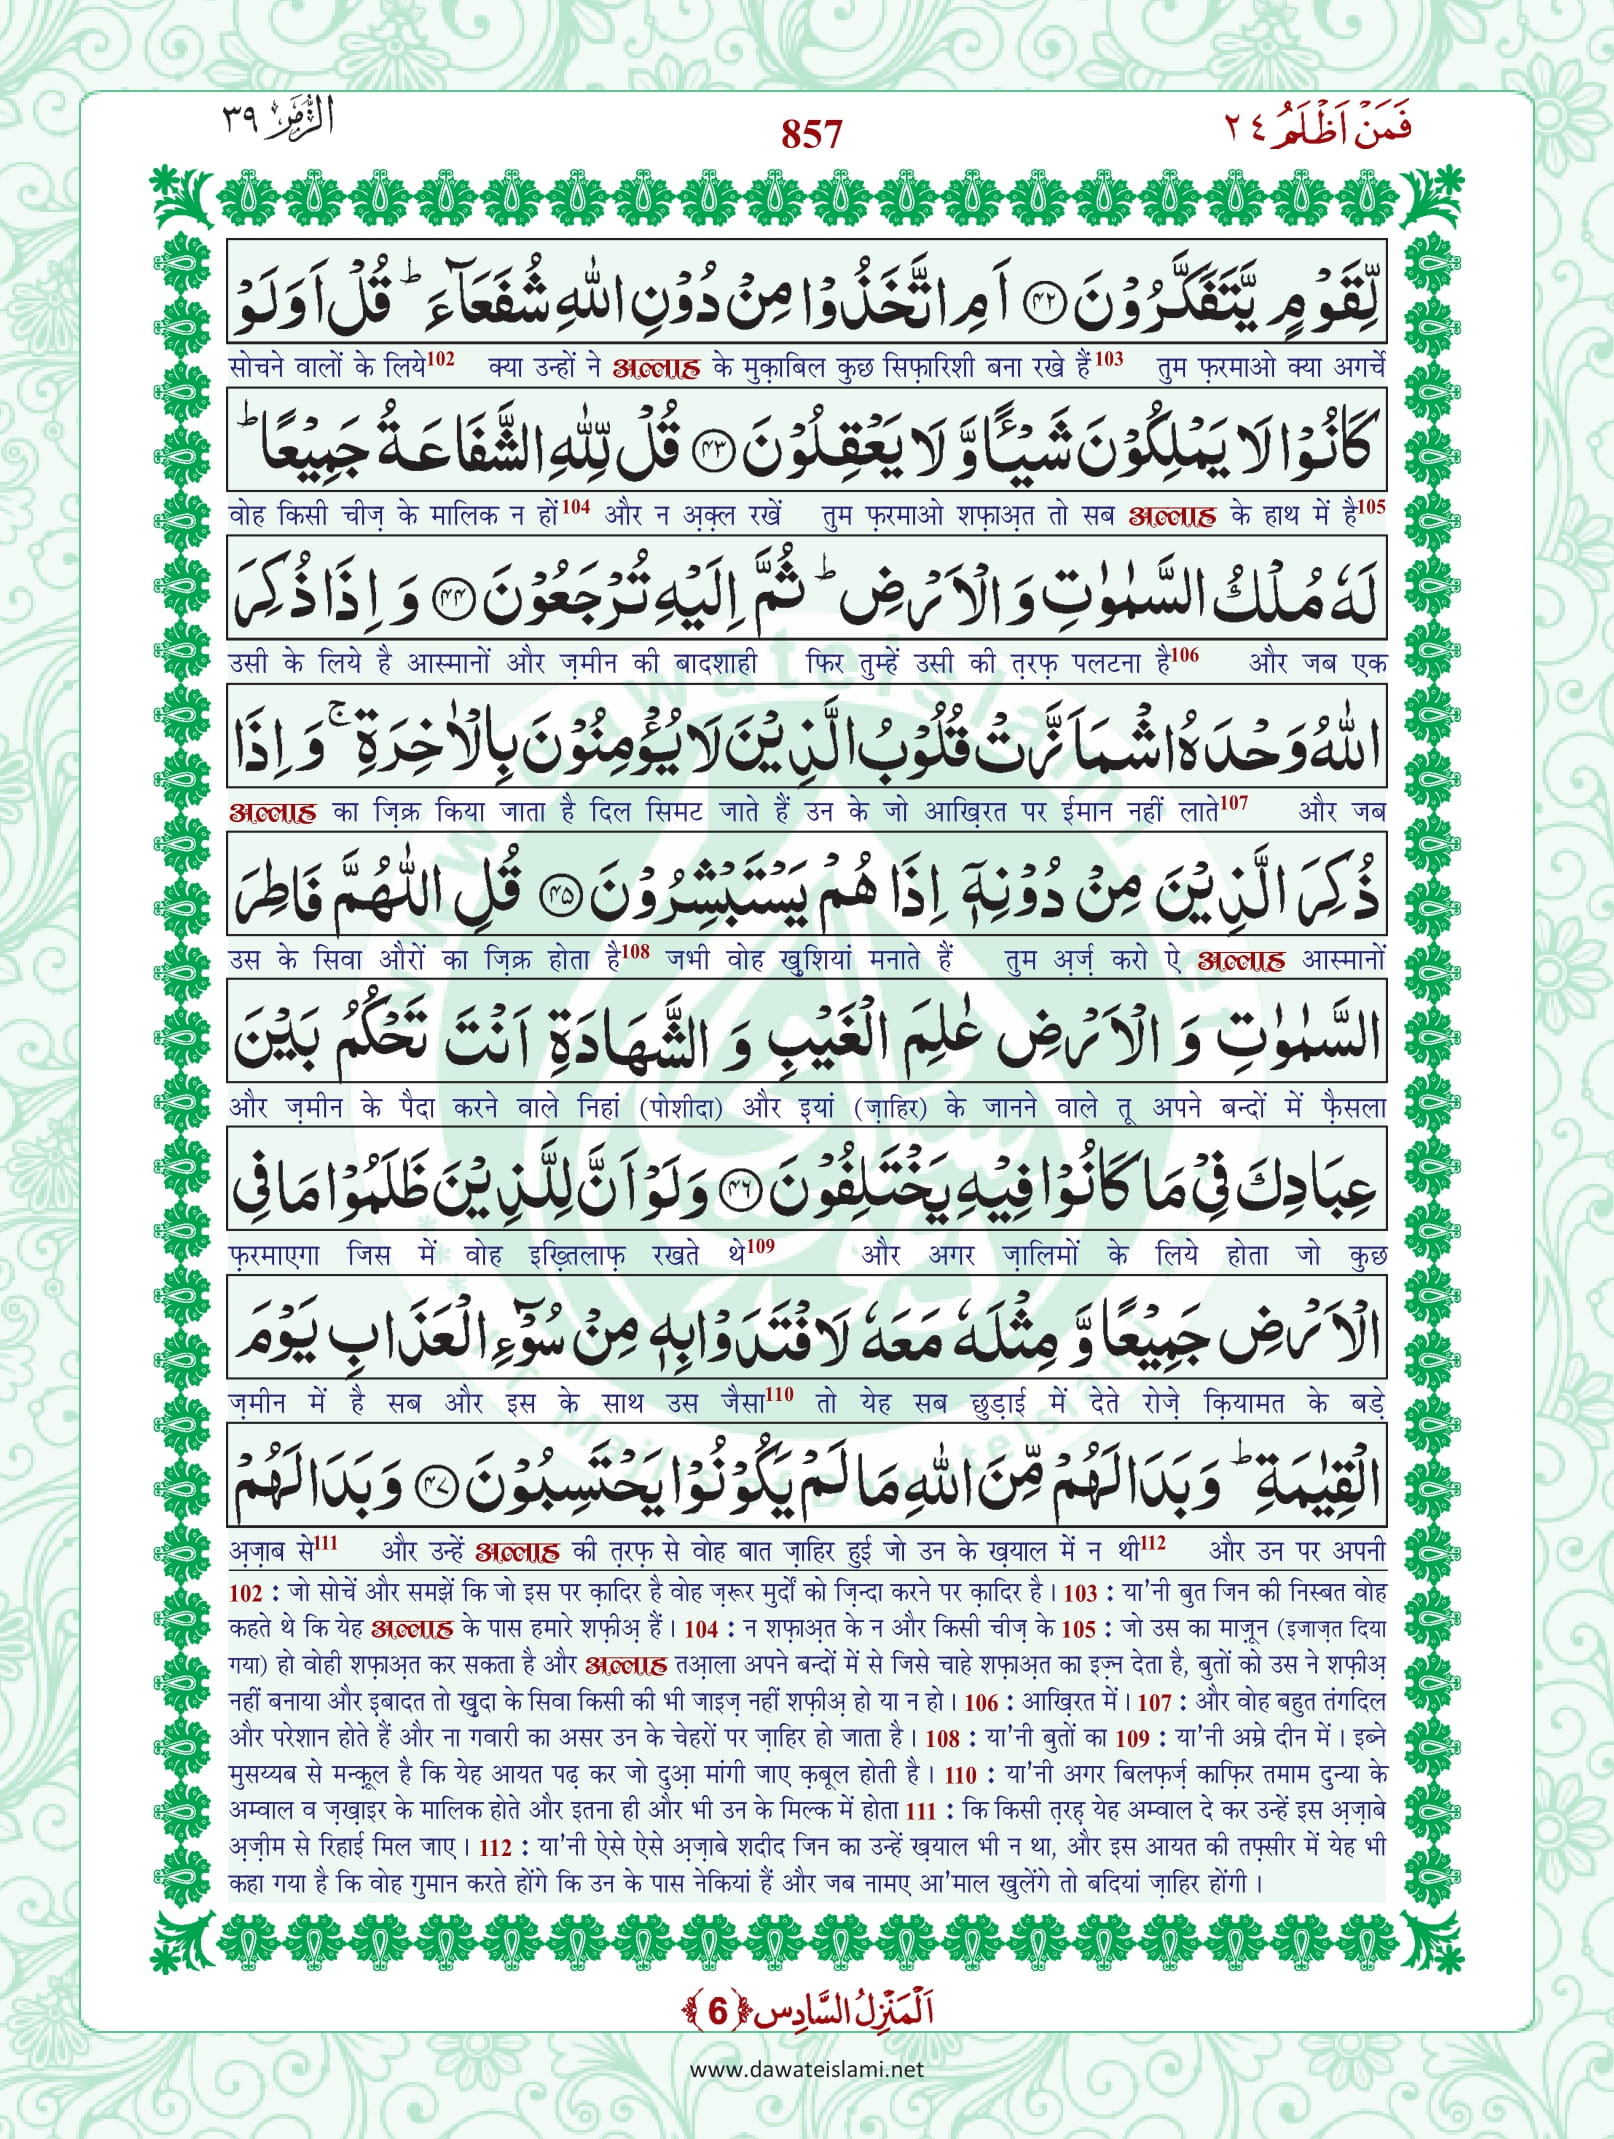 اَلزُّمَر ٣٩
857
فَمَنْ اَظْلَمُ ٢٤
لِّقَوْمٍ یَّتَفَكَّرُوْنَ ﴿۴۲﴾ اَمِ اتَّخَذُوْا مِنْ دُوْنِ اللّٰهِ شُفَعَآءَ ؕ قُلْ اَوَ لَوْ
सोचने वालों के लिये102 क्या उन्हों ने अल्लाह के मुक़ाबिल कुछ सिफ़ारिशी बना रखे हैं103 तुम फ़रमाओ क्या अगर्चे
كَانُوْا لَا یَمْلِكُوْنَ شَیْــٴًـا وَّ لَا یَعْقِلُوْنَ ﴿۴۳﴾ قُلْ لِّلّٰهِ الشَّفَاعَةُ جَمِیْعًا ؕ
वोह किसी चीज़ के मालिक न हों104 और न अ़क़्ल रखें तुम फ़रमाओ शफ़ाअ़त तो सब अल्लाह के हाथ में है105
لَهٗ مُلْكُ السَّمٰوٰتِ وَ الْاَرْضِ ؕ ثُمَّ اِلَیْهِ تُرْجَعُوْنَ ﴿۴۴﴾ وَ اِذَا ذُكِرَ
उसी के लिये है आस्मानों और ज़मीन की बादशाही फिर तुम्हें उसी की त़रफ़ पलटना है106 और जब एक
اللّٰهُ وَحْدَهُ اشْمَاَزَّتْ قُلُوْبُ الَّذِیْنَ لَا یُؤْمِنُوْنَ بِالْاٰخِرَةِ ۚ وَ اِذَا
अल्लाह का ज़िक्र किया जाता है दिल सिमट जाते हैं उन के जो आख़िरत पर ईमान नहीं लाते107 और जब
ذُكِرَ الَّذِیْنَ مِنْ دُوْنِهٖۤ اِذَا هُمْ یَسْتَبْشِرُوْنَ ﴿۴۵﴾ قُلِ اللّٰهُمَّ فَاطِرَ
उस के सिवा औरों का ज़िक्र होता है108 जभी वोह खुशियां मनाते हैं तुम अ़र्ज़ करो ऐ अल्लाह आस्मानों
السَّمٰوٰتِ وَ الْاَرْضِ عٰلِمَ الْغَیْبِ وَ الشَّهَادَةِ اَنْتَ تَحْكُمُ بَیْنَ
और ज़मीन के पैदा करने वाले निहां (पोशीदा) और इ़यां (ज़ाहिर) के जानने वाले तू अपने बन्दों में फ़ैसला
عِبَادِكَ فِیْ مَا كَانُوْا فِیْهِ یَخْتَلِفُوْنَ ﴿۴۶﴾ وَ لَوْ اَنَّ لِلَّذِیْنَ ظَلَمُوْا مَا فِی
फ़रमाएगा जिस में वोह इख़्तिलाफ़ रखते थे109 और अगर ज़ालिमों के लिये होता जो कुछ
الْاَرْضِ جَمِیْعًا وَّ مِثْلَهٗ مَعَهٗ لَافْتَدَوْا بِهٖ مِنْ سُوْٓءِ الْعَذَابِ یَوْمَ
ज़मीन में है सब और इस के साथ उस जैसा110 तो येह सब छुड़ाई में देते रोज़े क़ियामत के बड़े
الْقِیٰمَةِ ؕ وَ بَدَا لَهُمْ مِّنَ اللّٰهِ مَا لَمْ یَكُوْنُوْا یَحْتَسِبُوْنَ ﴿۴۷﴾ وَ بَدَا لَهُمْ
अ़ज़ाब से111 और उन्हें अल्लाह की त़रफ़ से वोह बात ज़ाहिर हुई जो उन के ख़याल में न थी112 और उन पर अपनी
102 : जो सोचें और समझें कि जो इस पर क़ादिर है वोह ज़रूर मुर्दों को ज़िन्दा करने पर क़ादिर है । 103 : या'नी बुत जिन की निस्बत वोह
कहते थे कि येह अल्लाह के पास हमारे शफ़ीअ़ हैं । 104 : न शफ़ाअ़त के न और किसी चीज़ के 105 : जो उस का माज़ून (इजाज़त दिया
गया) हो वोही शफ़ाअ़त कर सकता है और अल्लाह तआ़ला अपने बन्दों में से जिसे चाहे शफ़ाअ़त का इज़्न देता है, बुतों को उस ने शफ़ीअ़
नहीं बनाया और इ़बादत तो खुदा के सिवा किसी की भी जाइज़ नहीं शफ़ीअ़ हो या न हो । 106 : आख़िरत में । 107 : और वोह बहुत तंगदिल
और परेशान होते हैं और ना गवारी का असर उन के चेहरों पर ज़ाहिर हो जाता है । 108 : या'नी बुतों का 109 : या'नी अम्रे दीन में । इब्ने
मुसय्यब से मन्क़ूल है कि येह आयत पढ़ कर जो दुआ़ मांगी जाए क़बूल होती है । 110 : या'नी अगर बिलफ़र्ज़ काफ़िर तमाम दुन्या के
अम्वाल व ज़ख़ाइर के मालिक होते और इतना ही और भी उन के मिल्क में होता 111 : कि किसी त़रह़ येह अम्वाल दे कर उन्हें इस अ़ज़ाबे
अ़ज़ीम से रिहाई मिल जाए । 112 : या'नी ऐसे ऐसे अ़ज़ाबे शदीद जिन का उन्हें ख़याल भी न था, और इस आयत की तफ़्सीर में येह भी
कहा गया है कि वोह गुमान करते होंगे कि उन के पास नेकियां हैं और जब नामए आ'माल खुलेंगे तो बदियां ज़ाहिर होंगी ।
اَلْمَنْزِلُ السَّادِس ﴿6﴾
www.dawateislami.net